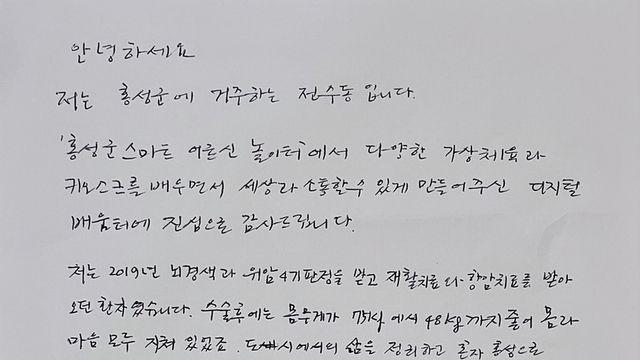 안녕하세요
저는 홍성군에 거주하는 전수동 입니다.
'홍성군 스마트 어르신 놀이터'에서 다양한 가상체육과
키오스크를 배우면서 세상과 소통할수 있게 만들어주신 디지털
배움터에 진심으로 감사드립니다.
저는 2019년 뇌경색과 위암4기판정을 받고 재활치료와 항암치료를 받아
오던 환자였습니다. 수술후에는 몸무게가 75kg 에서 48kg까지 줄어 몸과
마음 모두 지쳐 있었죠. 도시에서의 삶을 정리하고 혼자 홍성으로